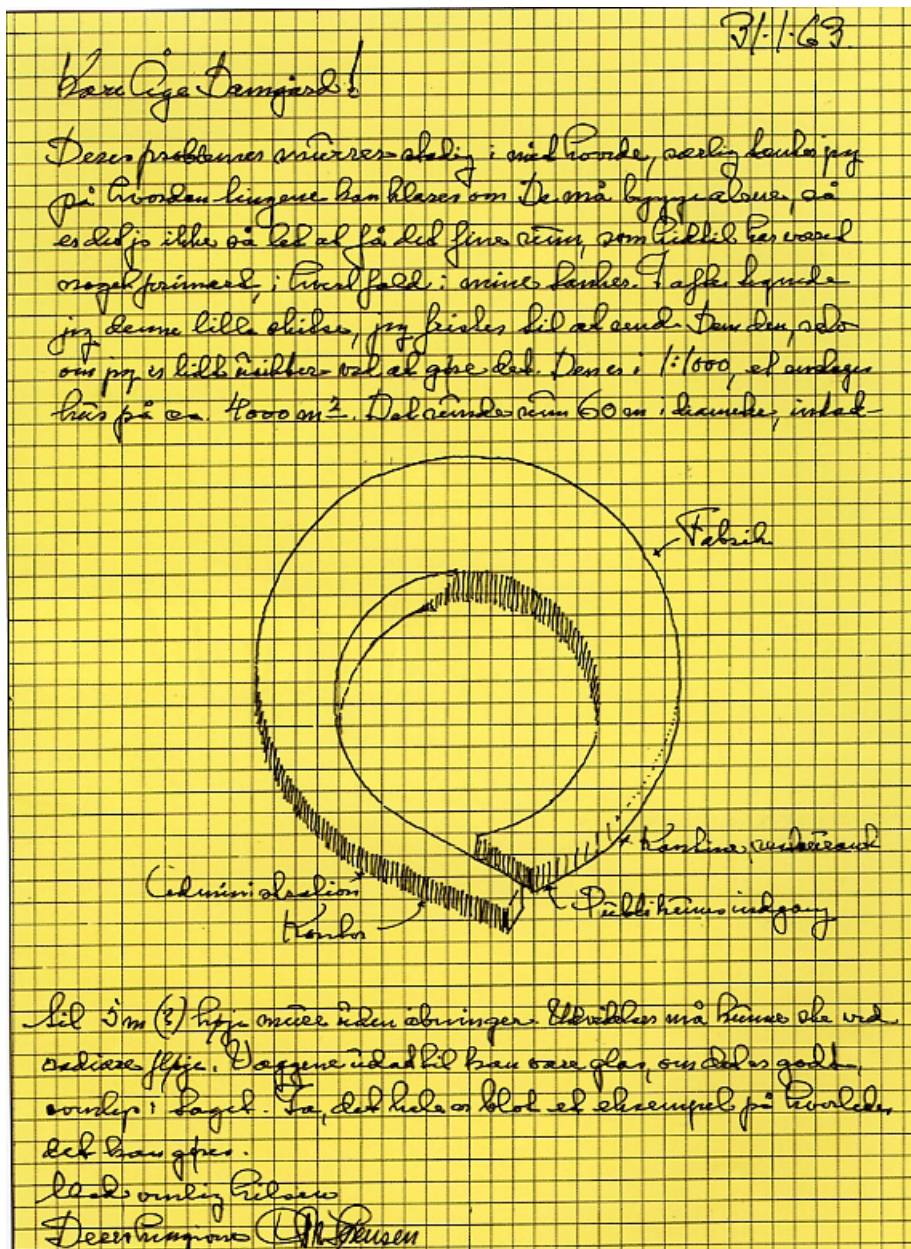 31.1.63.
Kære Åge Damgård!
Deres problemer murrer stadig i mit hovede, særlig tænker jeg
på hvordan tingene kan klares om De må bygge alene, så
er det jo ikke så let at få det fine rum, som hidtil har været
noget primært, i hvert fald i mine tanker. I aften tegnede
jeg denne lille skitse, jeg fristes til at sende Dem den, selv
om jeg er lidt ved at gøre det. Den er i 1:1000, et etages
hus på ca. 4000 m². Det runde rum 60 m i diameter, indad-
Fabrik
Kantine, restaurant
Administration
Publikumsindgang
Kontor
til 5 m (?) høje mure uden åbninger. Udvidelser må kunne ske ved
radiære fløje. Væggene udadtil kan være glas, om det er godt,
ovnlys i taget. Ja, det hele er blot et eksempel på hvorledes
det kan gøres.
Med venlig hilsen
Deres hengivne